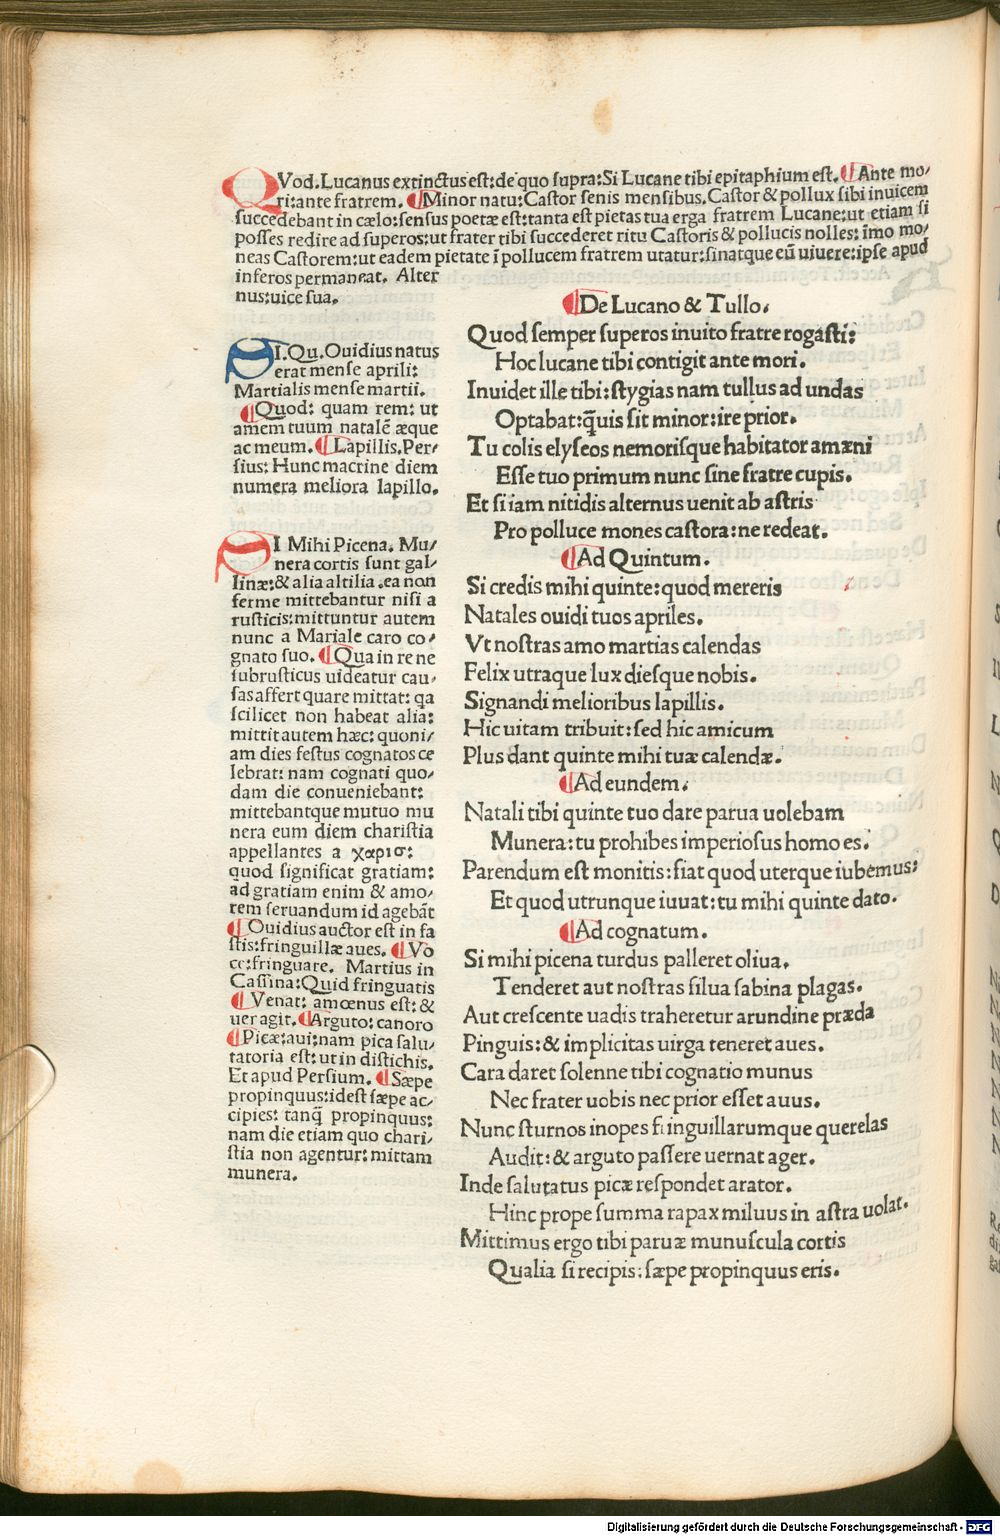 QVod. Lucanus extinctus est: de quo supra: Si Lucane tibi epitaphium est. ¶Ante mo/
ri: ante fratrem. ¶Minor natu: Castor senis mensibus. Castor & pollux sibi inuicem
succedebant in cælo: sensus poetæ est: tanta est pietas tua erga fratrem Lucane: ut etiam si
posses redire ad superos: ut frater tibi succederet ritu Castoris & pollucis nolles: īmo mo/
neas Castorem: ut eadem pietate ī pollucem fratrem utatur: sinatque eū uiuere: ipse apud
inferos permaneat. Alter
nus: uice sua.
SI. Qu. Ouidius natus
erat mense aprili:
Martialis mense martii.
¶Quod: quam rem: ut
amem tuum natalē æque
ac meum. ¶Lapillis. Per/
sius: Hunc macrine diem
numera meliora lapillo.
SI Mihi Picena. Mu/
nera cortis sunt gal/
linæ: & alia altilia .ea non
ferme mittebantur nisi a
rusticis: mittuntur autem
nunc a Mariale caro co/
gnato suo. ¶Qua in re ne
subrusticus uideatur cau/
sas affert quare mittat: qa
scilicet non habeat alia:
mittit autem hæc: quoni/
am dies festus cognatos ce
lebrat: nam cognati quo/
dam die conueniebant:
mittebantque mutuo mu
nera eum diem charistia
appellantes a χαρισ:
quod significat gratiam:
ad gratiam enim & amo/
rem seruandum id agebāt
¶Ouidius auctor est in fa
stis: fringuillæ aues. ¶Vo
ce: fringuare. Martius in
Cassina: Quid fringuatis
¶Venat: amœnus est: &
uer agit. ¶Arguto: canoro
¶Picæ: aui: nam pica salu/
tatoria est: ut in distichis.
Et apud Persium. ¶Sæpe
propinquus: idest sæpe ac/
cipies: tanq̄ propinquus:
nam die etiam quo chari/
stia non agentur: mittam
munera.
¶De Lucano & Tullo.
Quod semper superos inuito fratre rogasti:
Hoc lucane tibi contigit ante mori.
Inuidet ille tibi: stygias nam tullus ad undas
Optabat: q̄uis sit minor: ire prior.
Tu colis elyseos nemorisque habitator amæni
Esse tuo primum nunc sine fratre cupis.
Et si iam nitidis alternus uenit ab astris
Pro polluce mones castora: ne redeat.
¶Ad Quintum.
Si credis mihi quinte: quod mereris
Natales ouidi tuos apriles.
Vt nostras amo martias calendas
Felix utraque lux diesque nobis.
Signandi melioribus lapillis.
Hic uitam tribuit: sed hic amicum
Plus dant quinte mihi tuæ calendæ.
¶Ad eundem.
Natali tibi quinte tuo dare parua uolebam
Munera: tu prohibes imperiosus homo es.
Parendum est monitis: fiat quod uterque iubemus:
Et quod utrunque iuuat: tu mihi quinte dato.
¶Ad cognatum.
Si mihi picena turdus palleret oliua.
Tenderet aut nostras silua sabina plagas.
Aut crescente uadis traheretur arundine præda
Pinguis: & implicitas uirga teneret aues.
Cara daret solenne tibi cognatio munus
Nec frater uobis nec prior esset auus.
Nunc sturnos inopes fringuillarumque querelas
Audit: & arguto passere uernat ager.
Inde salutatus picæ respondet arator.
Hinc prope summa rapax miluus in astra uolat.
Mittimus ergo tibi paruæ munuscula cortis
Qualia si recipis: sæpe propinquus eris.
Digitalisierung gefördert durch die Deutsche Forschungsgemeinschaft - DFG